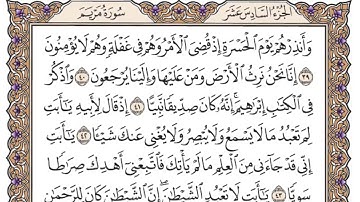 سُورَةُ مَرْيَم الجُزءُ السَّادِسَ عَشَرَ
وَأَنذِرْهُمْ يَوْمَ الْحَسْرَةِ إِذْ قُضِيَ الْأَمْرُ وَهُمْ فِي غَفْلَةٍ وَهُمْ لَا يُؤْمِنُونَ
٣٩ إِنَّا نَحْنُ نَرِثُ الْأَرْضَ وَمَنْ عَلَيْهَا وَإِلَيْنَا يُرْجَعُونَ ٤٠ وَاذْكُرْ
فِي الْكِتَابِ إِبْرَاهِيمَ إِنَّهُ كَانَ صِدِّيقًا نَّبِيًّا ٤١ إِذْ قَالَ لِأَبِيهِ يَا أَبَتِ
لِمَ تَعْبُدُ مَا لَا يَسْمَعُ وَلَا يُبْصِرُ وَلَا يُغْنِي عَنكَ شَيْئًا ٤٢ يَا أَبَتِ
إِنِّي قَدْ جَاءَنِي مِنَ الْعِلْمِ مَا لَمْ يَأْتِكَ فَاتَّبِعْنِي أَهْدِكَ صِرَاطًا
سَوِيًّا ٤٣ يَا أَبَتِ لَا تَعْبُدِ الشَّيْطَانَ إِنَّ الشَّيْطَانَ كَانَ لِلرَّحْمَٰنِ